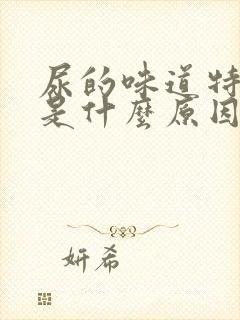 尿的味道特
是什麼原因
妍希